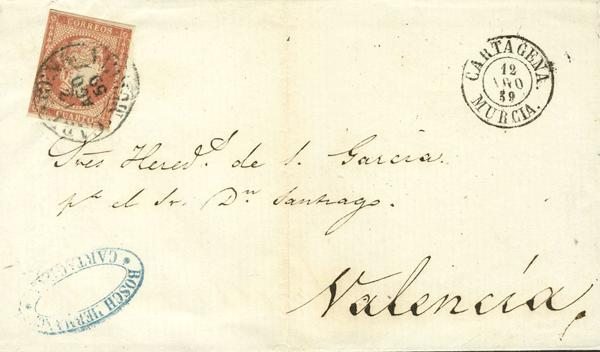 CORREOS
CUARTOS
CARTAGENA.
12
AGO
59
MURCIA.
Sres Hered.s de S. García.
pa el Sr. Dn Santiago.
Valencia
BOSCH HERMANOS
* CARTAGENA *